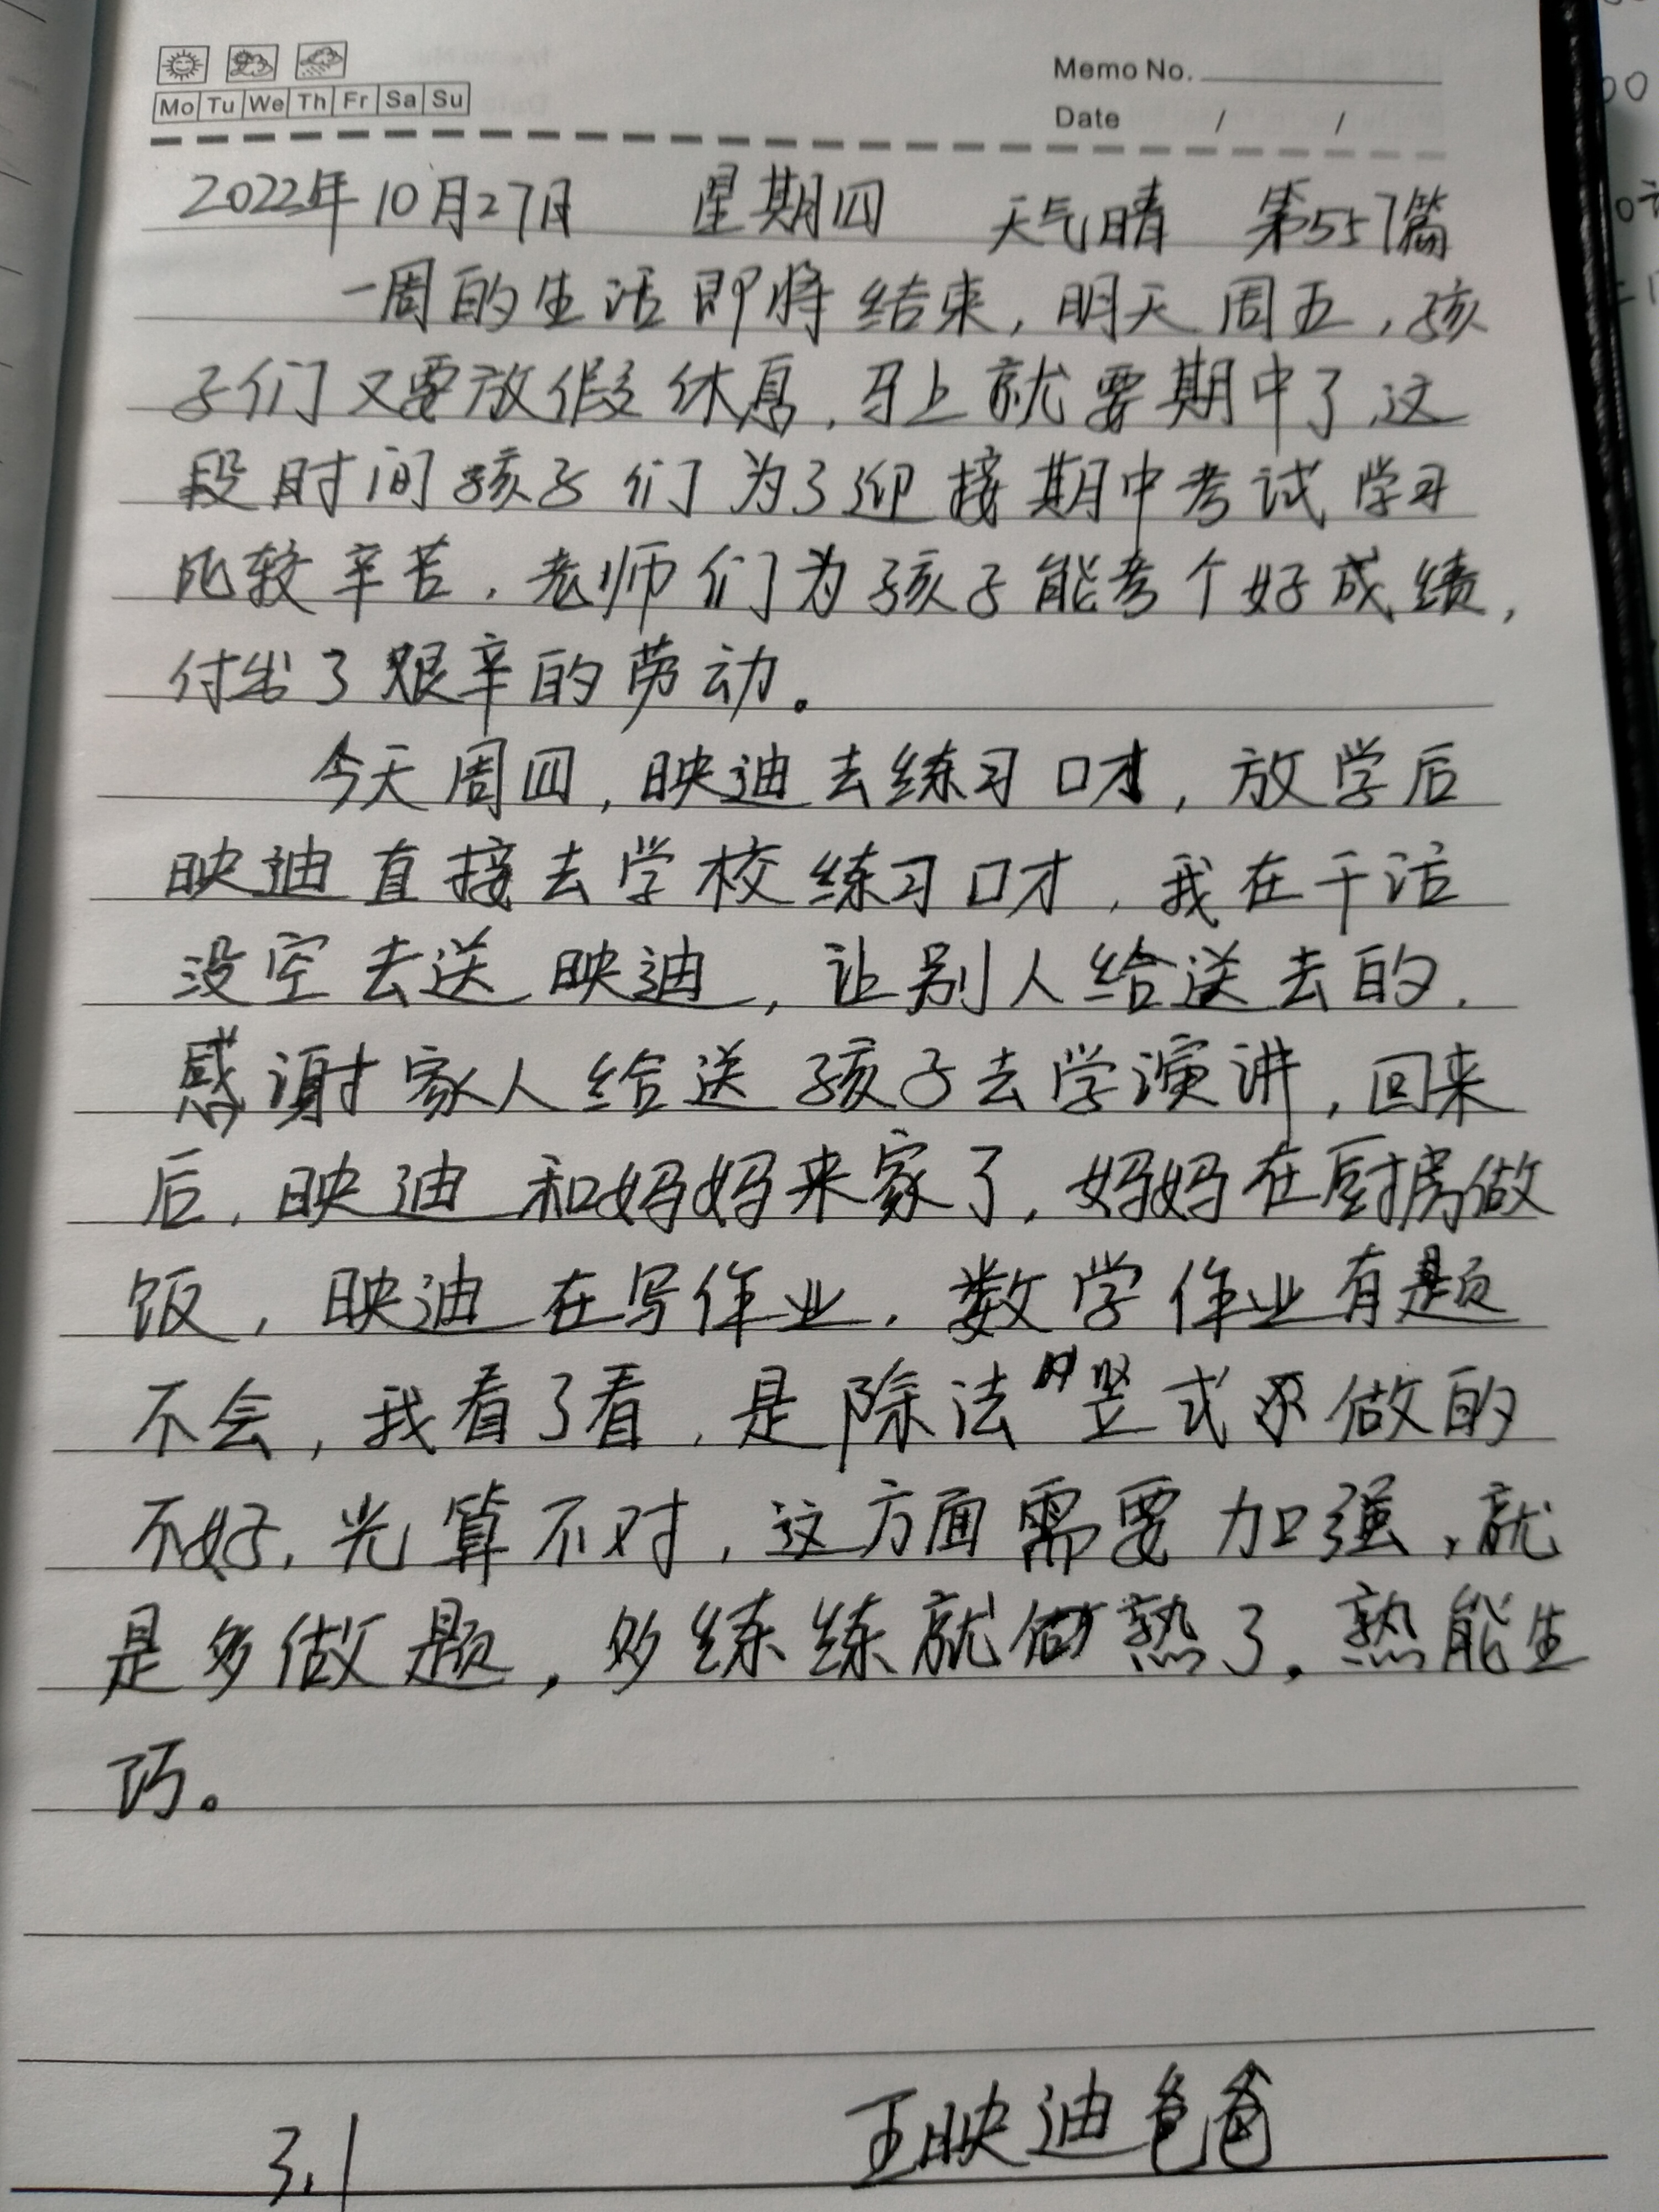 Memo No.
Mo Tu We Th Fr Sa Su
Date / /
2022年10月27日 星期四 天气晴 第557篇
一周的生活即将结束,明天周五,孩
子们又要放假休息,马上就要期中了,这
段时间孩子们为了迎接期中考试学习
比较辛苦,老师们为孩子能考个好成绩,
付出了艰辛的劳动。
今天周四,映迪去练习口才,放学后
映迪直接去学校练习口才,我在干活
没空去送映迪,让别人给送去的,
感谢家人给送孩子去学演讲,回来
后,映迪和妈妈来家了,妈妈在厨房做
饭,映迪在写作业,数学作业有题
不会,我看了看,是除法竖式做的
不好,光算不对,这方面需要加强,就
是多做题,多练练就做熟了。熟能生
巧。
3.1 王映迪爸爸